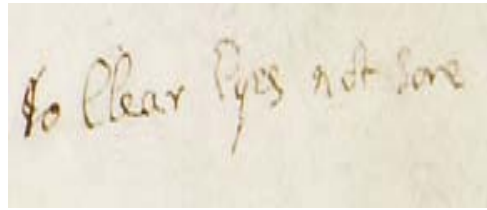 to Clear Eyes not Sore